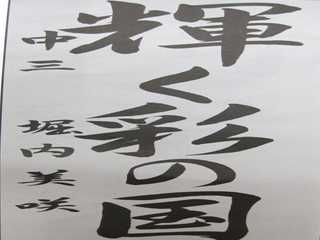 輝く彩の国
中三 堀内美咲